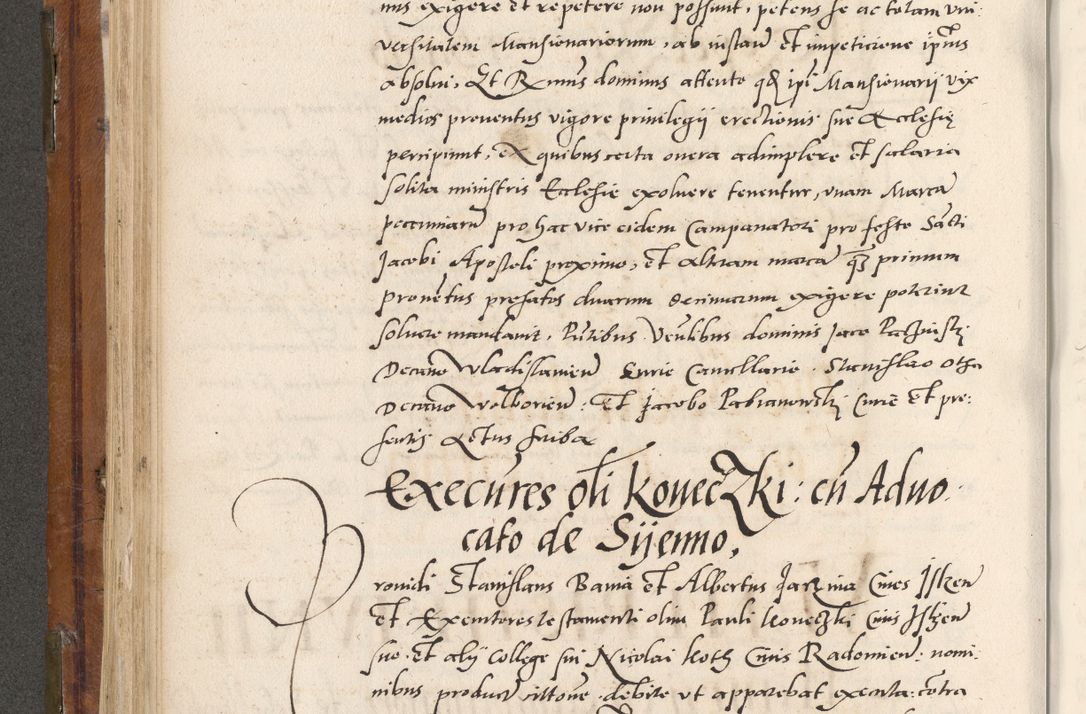 nus exigere et repetere non possunt, petens se ac totam uni-
versitatem Mansionariorum, ab instan et impeticione ipius
absolvi, Et Rmus dominus attento qd ipi Mansionarij vix
medios proventus vigore privilegij erectionis sue Ecclesię
percipiunt, Ex quibus certa onera adimplere et salaria
solita ministris Ecclesie exolvere tenentur, unam Marca
pecuniarū pro hac vice eidem Campanatori pro festo Sācti
Jacobi Apostoli proximo, et alteram marcā primum
proventus prefatos duarum decimarum exigere poterint
solvere mandavit, Pntibus Venlibus dominis Jaco
Decano Wladislavien Curie Cancellario. Stanislao
Decano Wolborien: Et Jacobo Pabianowskj Curie et pre-
sentis Actus scriba
Execures oli Koneczki: cū Advo-
cato de Sijenno,
Providi Stanislaus Et Albertus Cives
Et Executores testamenti olim Pauli Koneczki Civis
suo et alij College sui Nicolai Koth Civis Radomien: nomi-
nibus product cittone debite ut apparebat executa: cōtra